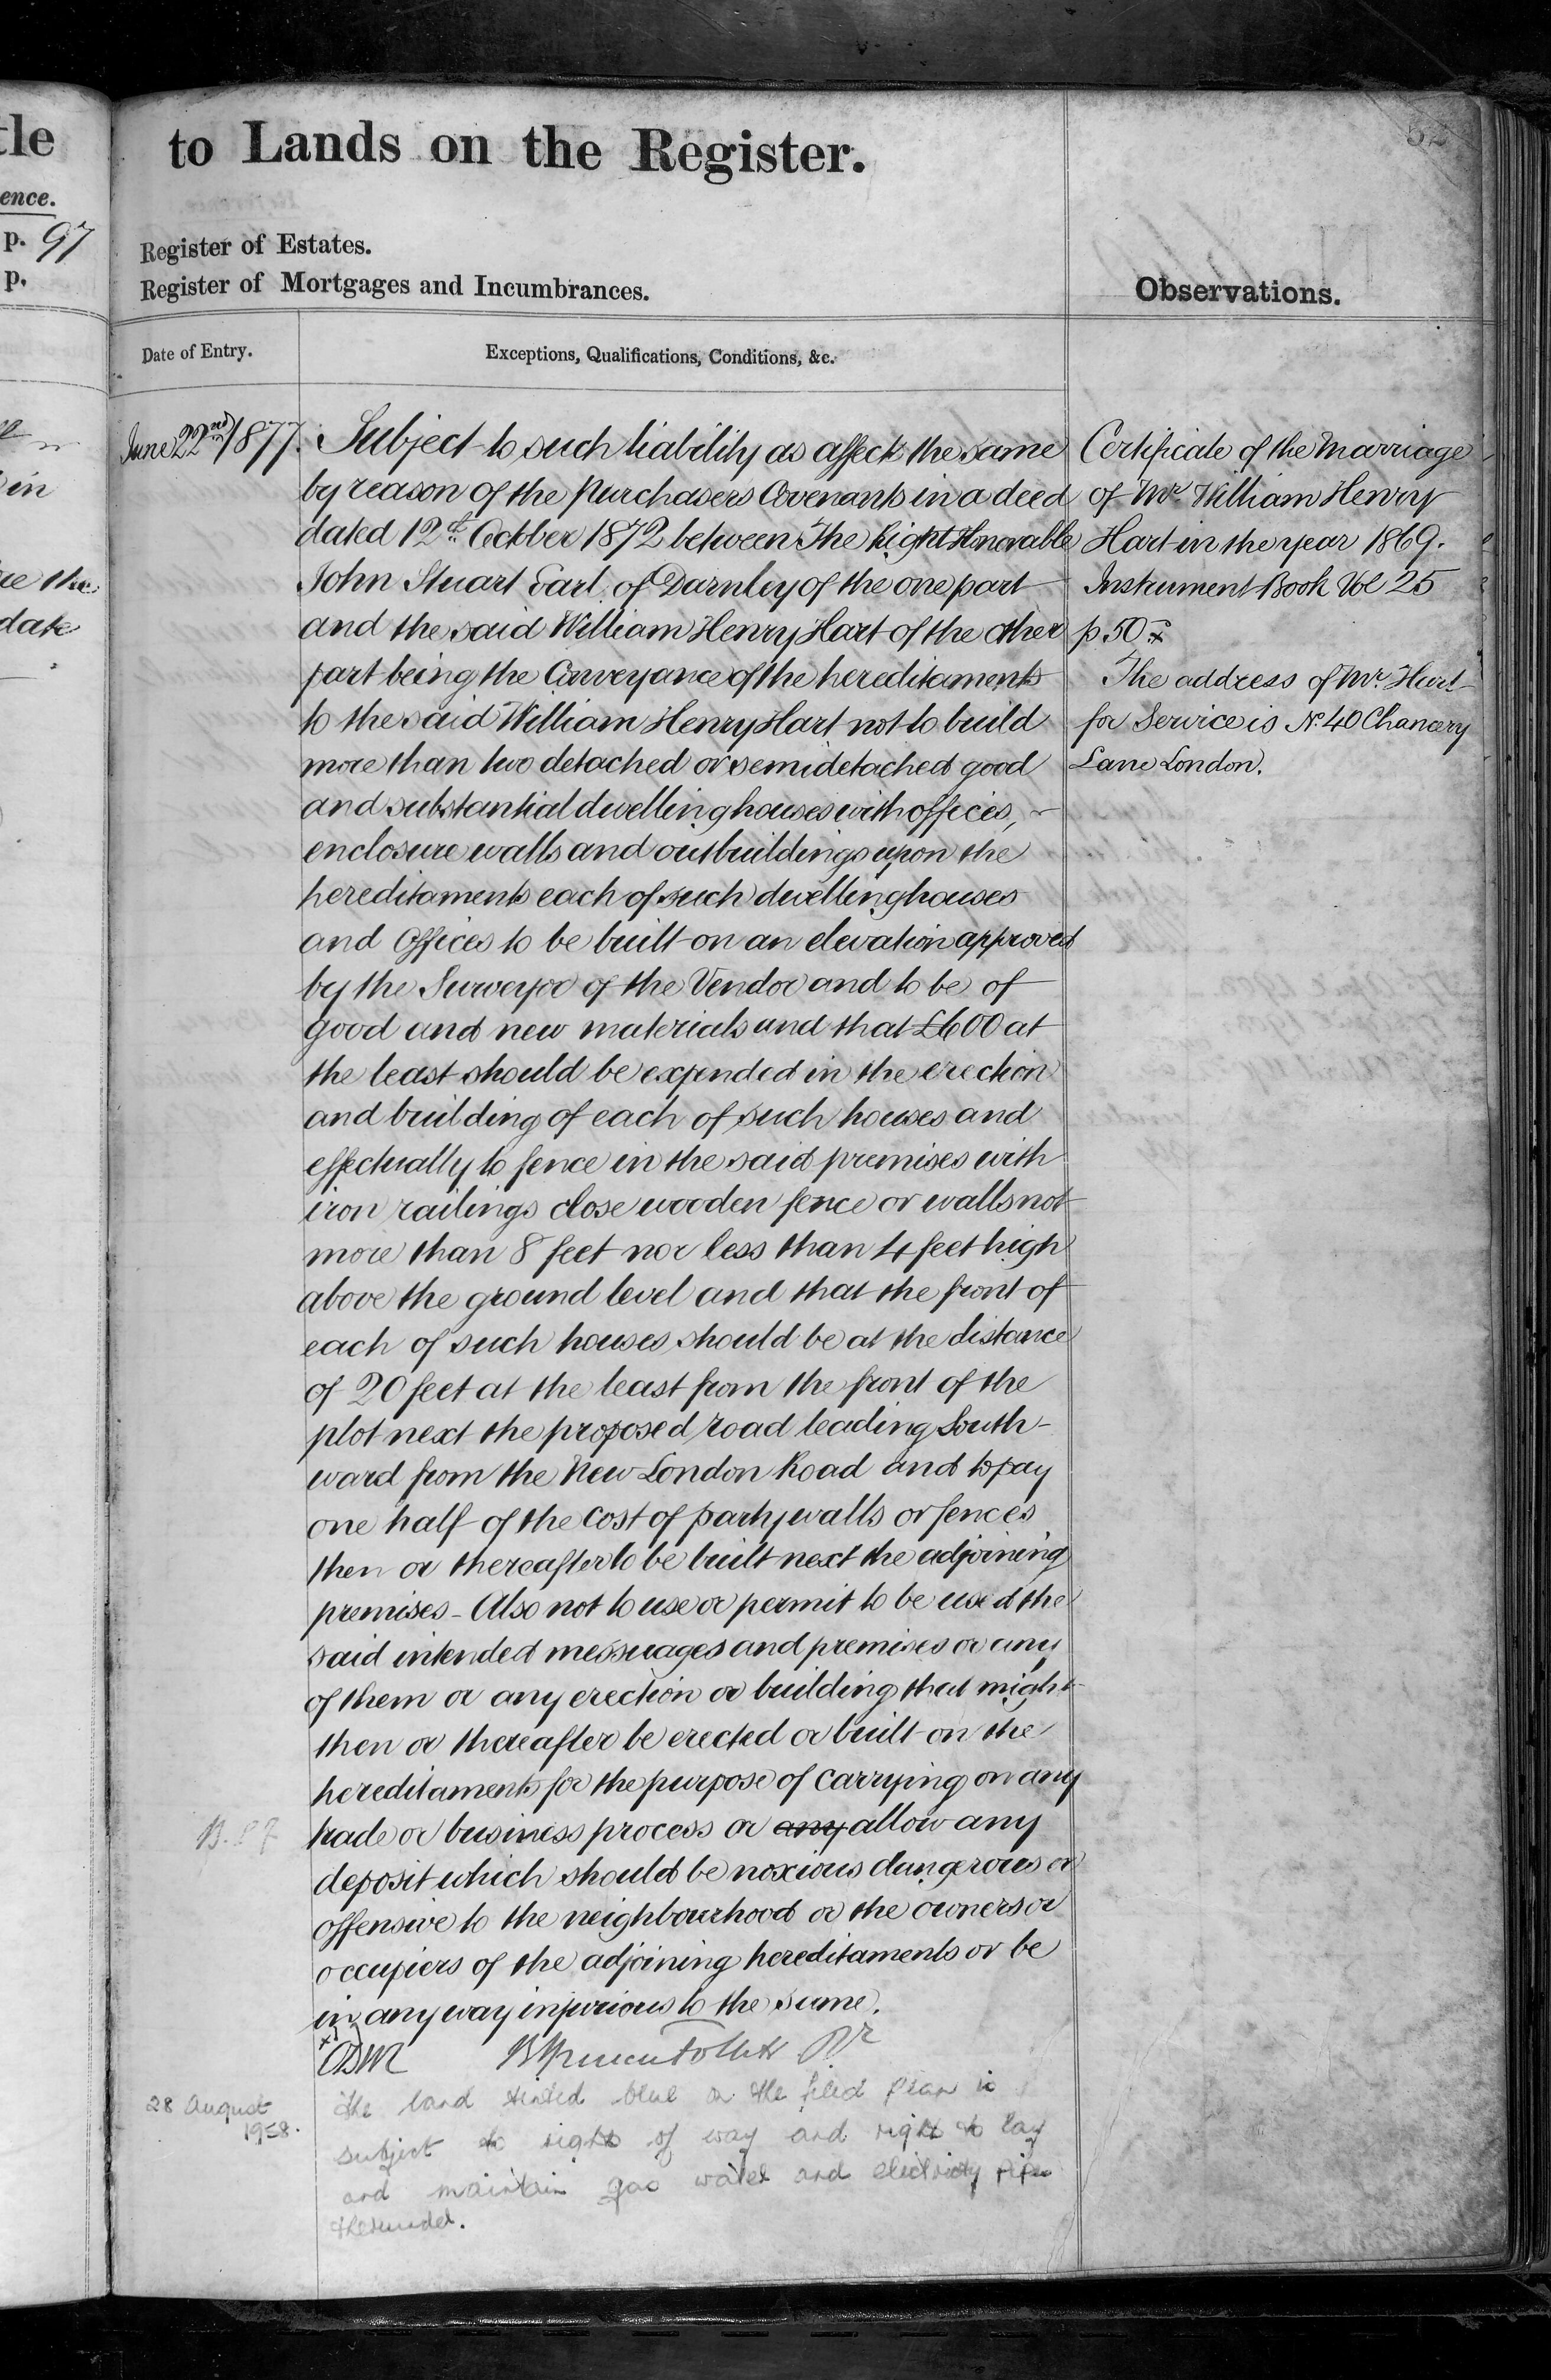 tle
ence.
p. 97
p.
in
ue the
date
to Lands on the Register.
62
Register of Estates.
Register of Mortgages and Incumbrances.
Observations.
Date of Entry.
Exceptions, Qualifications, Conditions, &c.
June 22nd 1877.
Subject to such liability as affects the same
by reason of the Purchasers Covenants in a deed
dated 12th October 1872 between The Right Honorable
John Stuart Earl of Darnley of the one part
and the said William Henry Hart of the other
part being the Conveyance of the hereditaments
to the said William Henry Hart not to build
more than two detached or semidetached good
and substantial dwellinghouses with offices,
enclosure walls and outbuildings upon the
hereditaments each of such dwellinghouses
and Offices to be built on an elevation approved
by the Surveyor of the Vendor and to be of
good and new materials and that £600 at
the least should be expended in the erection
and building of each of such houses and
effectually to fence in the said premises with
iron railings close wooden fence or walls not
more than 8 feet nor less than 4 feet high
above the ground level and that the front of
each of such houses should be at the distance
of 20 feet at the least from the front of the
plot next the proposed road leading South-
ward from the New London Road and to pay
one half of the cost of party walls or fences
then or thereafter to be built next the adjoining
premises - Also not to use or permit to be used the
said intended messuages and premises or any
of them or any erection or building that might
then or thereafter be erected or built on the
hereditaments for the purpose of carrying on any
trade or business process or any allow any
deposit which should be noxious dangerous or
offensive to the neighbourhood or the owners or
occupiers of the adjoining hereditaments or be
in any way injurious to the same.
28 August
1958.
The land tinted blue on the filed plan is
subject to rights of way and right to lay
and maintain gas water and electricity pipes
thereunder.
Certificate of the Marriage
of Mr. William Henry
Hart in the year 1869.
Instrument Book Vol 25
p. 50
The address of Mr. Hart
for Service is No. 40 Chancery
Lane London.